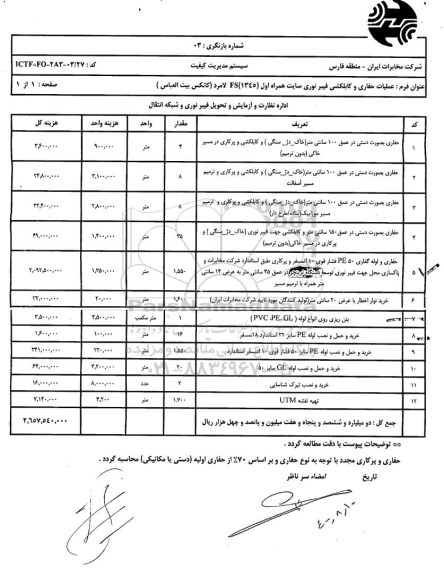 شماره بازنگری : ۰۳
شرکت مخابرات ایران - منطقه فارس
سیستم مدیریت کیفیت
کد : ICTF-FO-282-03/27
عنوان فرم : عملیات حفاری و کابلکشی فیبر نوری سایت همراه اول FS(1345) لامرد (کانکس بیت العباس )
صفحه : ۱ از ۱
اداره نظارت و آزمایش و تحویل فیبر نوری و شبکه انتقال
کد مقدار واحد هزینه واحد هزینه کل
۱ حفاری بصورت دستی در عمق ۱۰۰ سانتی متر(خاک_دژ_سنگی ) و کابلکشی و پرکاری در مسیر خاکی (بدون ترمیم) ۴ متر ۹۰۰,۰۰۰ ۳,۶۰۰,۰۰۰
۲ حفاری بصورت دستی در عمق ۱۰۰ سانتی متر(خاک_دژ_سنگی ) و کابلکشی و پرکاری و ترمیم مسیر آسفالت ۸ متر ۳,۱۰۰,۰۰۰ ۲۴,۸۰۰,۰۰۰
۳ حفاری بصورت دستی در عمق ۱۰۰ سانتی متر(خاک_دژ_سنگی ) و کابلکشی و پرکاری و ترمیم مسیر موزاییک ساده(طرح دار) ۸ متر ۲,۸۰۰,۰۰۰ ۲۲,۴۰۰,۰۰۰
۴ حفاری بصورت دستی در عمق۱۵۰ سانتی متر و کابلکشی جهت فیبر نوری (خاک_دژ_سنگی ) و پرکاری در مسیر خاکی(بدون ترمیم) ۳۵ متر ۱,۴۰۰,۰۰۰ ۴۹,۰۰۰,۰۰۰
۵ حفاری و لوله گذاری PE ۵۰ فشار قوی ۱۰ اتمسفر و پرکاری طبق استاندارد شرکت مخابرات و پاکسازی محل جهت فیبر نوری توسط در عمق ۴۵ سانتی متر به عرض ۱۴ سانتی متر همراه با ترمیم مسیر ۱,۵۵۰ متر ۱,۳۵۰,۰۰۰ ۲,۰۹۲,۵۰۰,۰۰۰
۶ خرید نوار اخطار با عرض ۲۰ سانتی متر(تولید کنندگان مورد تایید شرکت مخابرات ایران) متر ۲۰,۰۰۰
۷ بتن ریزی روی انواع لوله ( PVC ،PE،GL ) ۱ متر مکعب ۳,۵۰۰,۰۰۰ ۳,۵۰۰,۰۰۰
۸ خرید و حمل و نصب لوله PE سایز ۳۲ استاندارد ۸ اتمسفر ۱۶ متر ۱۰۰,۰۰۰ ۱,۶۰۰,۰۰۰
۹ خرید و حمل و نصب لوله PE سایز ۵۰ فشار قوی ۱۰ اتمسفر استاندارد ۱,۵۵۰ متر ۲۲۰,۰۰۰ ۳۴۱,۰۰۰,۰۰۰
۱۰ خرید و حمل و نصب لوله GL سایز ۵۰ ۲۰ متر ۳,۲۰۰,۰۰۰ ۶۴,۰۰۰,۰۰۰
۱۱ خرید و نصب تیرک شناسایی ۲ عدد ۸,۰۰۰,۰۰۰ ۱۶,۰۰۰,۰۰۰
۱۲ تهیه نقشه UTM ۱,۷۰۰ متر ۴,۲۰۰ ۷,۱۴۰,۰۰۰
جمع کل : دو میلیارد و ششصد و پنجاه و هفت میلیون و پانصد و چهل هزار ریال ۲,۶۵۷,۵۴۰,۰۰۰
** توضیحات پیوست با دقت مطالعه گردد .
حفاری و پرکاری مجدد با توجه به نوع حفاری و بر اساس ۷۰٪ از حفاری اولیه (دستی یا مکانیکی) محاسبه گردد .
تاریخ
امضاء سر ناظر